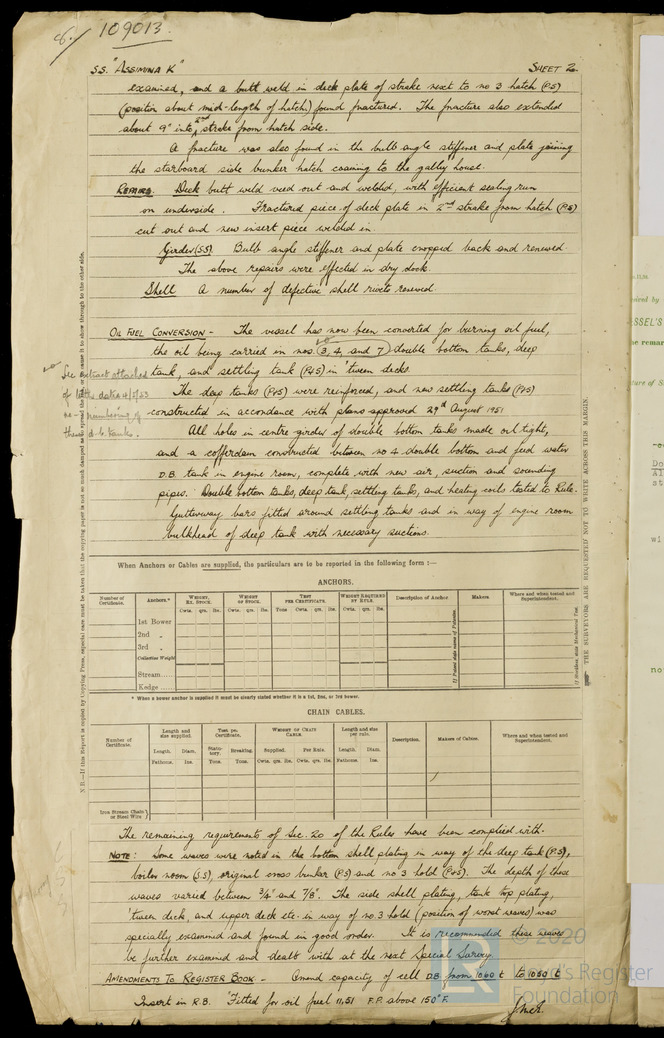 8. 109013.
S.S. "ASSIMINA K" SHEET 2
examined, and a butt weld in deck plate of strake next to no 3 hatch (P.S)
(position about mid-length of hatch) found fractured. The fracture also extended
about 9" into 2nd strake from hatch side.
A fracture was also found in the bulb angle stiffener and plate joining
the starboard side bunker hatch coaming to the galley house.
REPAIRS. Deck butt weld veed out and welded, with efficient sealing run
on underside. Fractured piece of deck plate in 2nd strake from hatch (P.S)
cut out and new insert piece welded in.
Girder (S.S). Bulb angle stiffener and plate cropped back and renewed.
The above repairs were effected in dry dock.
Shell A number of defective shell rivets renewed.
OIL FUEL CONVERSION - The vessel has now been converted for burning oil fuel,
the oil being carried in nos. (3, 4, and 7) double bottom tanks, deep
tank, and settling tank (P&S) in 'tween decks.
The deep tanks (P&S) were reinforced, and new settling tanks (P&S)
constructed in accordance with plans approved 29th August 1951
All holes in centre girder of double bottom tanks made oil tight,
and a cofferdam constructed between no 4 double bottom and feed water
D.B. tank in engine room, complete with new air, suction and sounding
pipes. Double bottom tanks, deep tank, settling tanks, and heating coils tested to Rule.
Gutterway bars fitted around settling tanks and in way of engine room
bulkhead of deep tank with necessary suctions.
See extract attached
of letter dated
re- numbering of
these d.b. tanks.
When Anchors or Cables are supplied, the particulars are to be reported in the following form :—
ANCHORS.
Number of Certificate. Anchors.* WEIGHT, EX. STOCK. WEIGHT OF STOCK. TEST PER CERTIFICATE. WEIGHT REQUIRED BY RULE. Description of Anchor. Makers. Where and when tested and Superintendent.
Cwts. qrs. lbs. Cwts. qrs. lbs. Tons Cwts. qrs. lbs. Cwts. qrs. lbs.
1st Bower
2nd "
3rd "
Collective Weight
Stream
Kedge
If Patent state name of Patentee.
* When a bower anchor is supplied it must be clearly stated whether it is a 1st, 2nd, or 3rd bower.
CHAIN CABLES.
Number of Certificate. Length and size supplied. Test per Certificate. WEIGHT OF CHAIN CABLE. Length and size per rule. Description. Makers of Cables. Where and when tested and Superintendent.
Length. Diam. Statutory. Breaking. Supplied. Per Rule. Length. Diam.
Fathoms. Ins. Tons. Tons. Cwts. qrs. lbs. Cwts. qrs. lbs. Fathoms. Ins.
Iron Stream Chain or Steel Wire
The remaining requirements of Sec. 20 of the Rules have been complied with.
NOTE: Some waves were noted in the bottom shell plating in way of the deep tank (P.S),
boiler room (S.S), original cross bunker (P.S) and no 3 hold (P&S). The depth of these
waves varied between 3/4" and 7/8". The side shell plating, tank top plating,
'tween deck, and upper deck etc. in way of no 3 hold (position of worst waves) was
specially examined and found in good order. It is recommended these waves
be further examined and dealt with at the next Special Survey.
AMENDMENTS TO REGISTER BOOK. - Amend capacity of cell D.B. from 1060 t to 1050 t
Insert in R.B. "Fitted for oil fuel 11,51 F.P. above 150°F.
THE SURVEYORS ARE REQUESTED NOT TO WRITE ACROSS THIS MARGIN.
© 2020
Lloyd's Register
Foundation